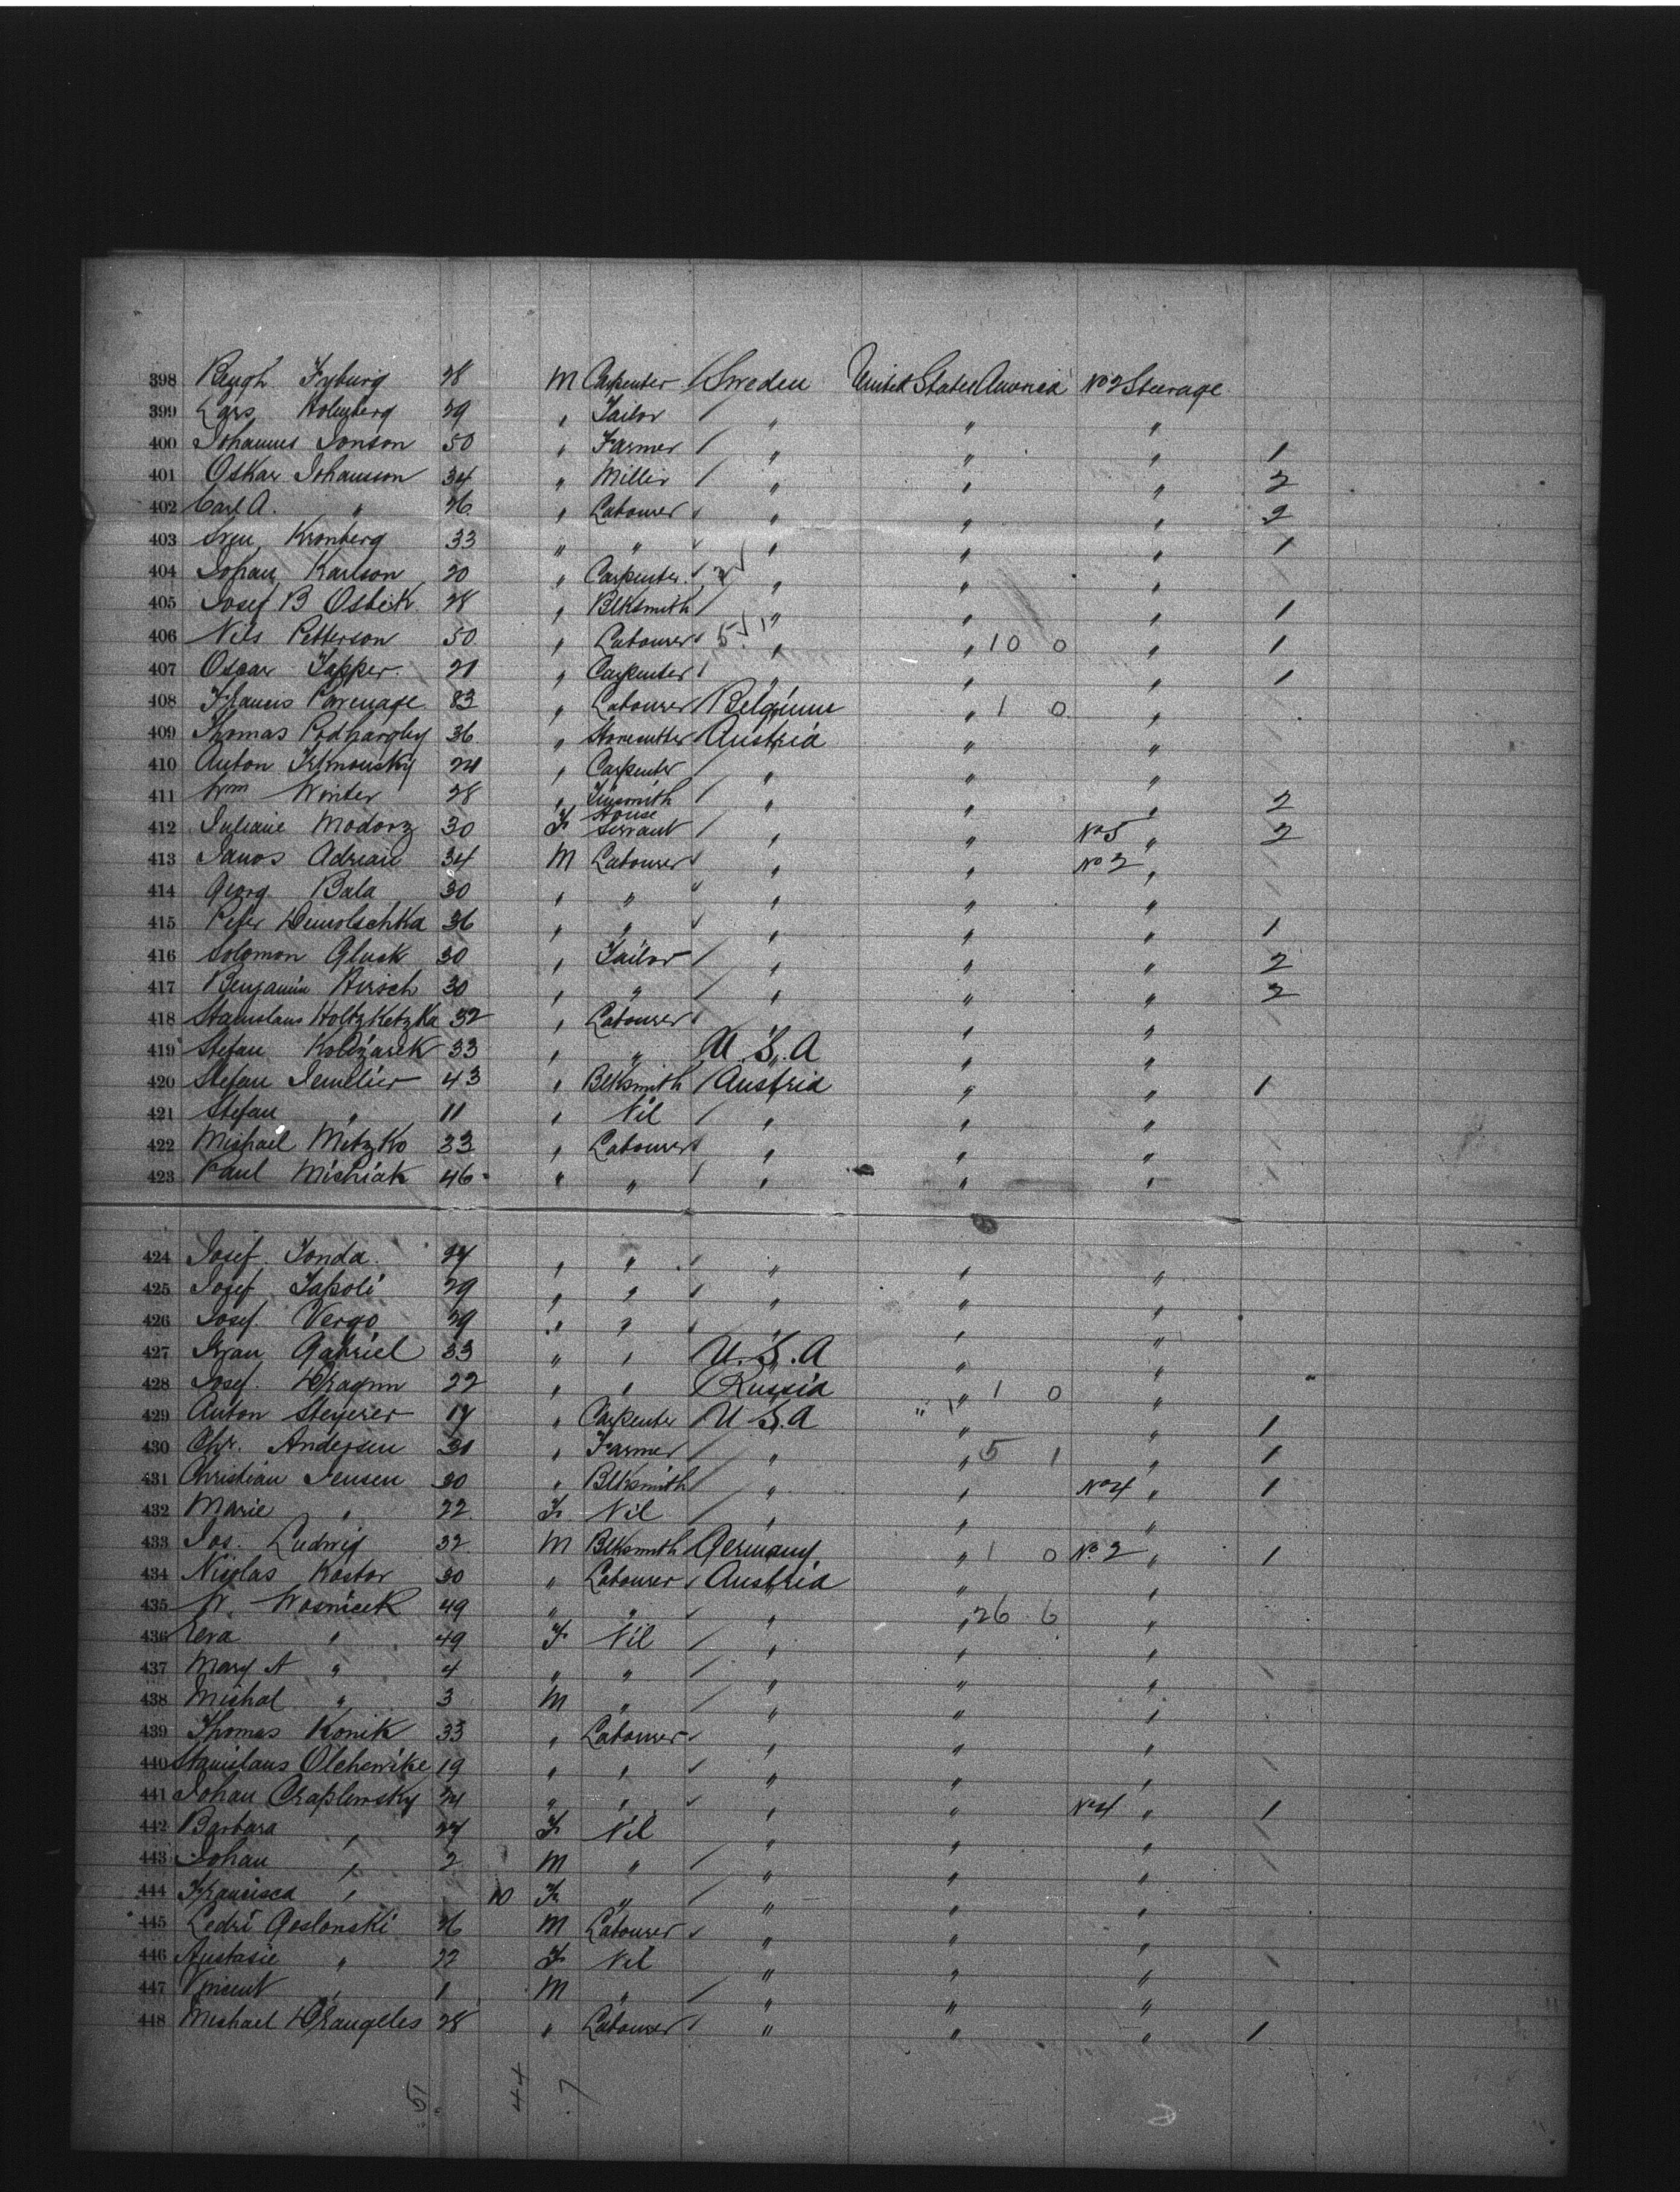 398 Bengh Fryburg 28 M Carpenter / Sweden United States America No 2 Steerage
399 Lars Holmberg 29 " Tailor / " " "
400 Johannes Jonson 50 " Farmer / " " " 1
401 Oskar Johanson 34 " Miller / " " " 2
402 Carl A. " 26 " Labourer " " " 2
403 Sven Kronberg 33 " " " " " 1
404 Johan Karlson 20 " Carpenter 2 " " "
405 Josef B Osbeck 28 " Blksmith / " " " 1
406 Nils Petterson 50 " Labourer 5 " " 10 0 " 1
407 Oscar Tapper 21 " Carpenter " " " 1
408 Labourer Belgium " 1 0 "
409 Thomas 36 " Stonecutter Austria " "
410 Anton 24 " Carpenter / " " "
411 Wm Winter 28 " Tinsmith / " " " 2
412 Juliane Modorz 30 F House Servant / " " No 5 " 2
413 Janos Adrian 34 M Labourer " " No 2 "
414 Georg Bala 30 " " " " "
415 Peter Demolschka 36 " " " " " 1
416 Solomon Gluck 30 " Tailor / " " " 2
417 Benjamin Hirsch 30 " " / " " " 2
418 Stanislaus Holtzketzka 32 " Labourer " " "
419 Stefan 33 " " U.S.A " "
420 Stefan Jemelier 43 " Blksmith / Austria " " 1
421 Stefan " 11 " Nil / " " "
422 Michael Mitzko 33 " Labourer " " "
423 Paul Mishiak 46 " " / " " "
424 Josef Tonda 27 " " " " "
425 Josef Tapoli 29 " " " " "
426 Josef Vergo 29 " " " " "
427 Ivan Gabriel 33 " " U.S.A " "
428 Josef Dragun 22 " " Russia " 1 0 "
429 Anton Steyerer 17 " Carpenter U S.A " " 1
430 Chr. Andersen 31 " Farmer / " " 5 1 " 1
431 Christian Jensen 30 " Blksmith / " " No 4 " 1
432 Marie " 22 F Nil / " " "
433 Jos. Ludwig 32 M Blksmith Germany " 1 0 No 2 " 1
434 Nicolas Kostor 30 " Labourer Austria " "
435 W. Wosnicek 49 " " " " 26 6 "
436 Eva " 49 F Nil / " " "
437 Mary A " 4 " " / " " "
438 Michal " 3 M " / " " "
439 Thomas Konik 33 " Labourer " " "
440 Stanislaus Olchewike 19 " " " " "
441 Johan Czaplewsky 24 " " " " No 4 " 1
442 Barbara " 27 F Nil " " "
443 Johan " 2 M " / " " "
444 Francisca " 10 F " / " " "
445 Goslonski 26 M Labourer " " "
446 Anstasie " 22 F Nil " " "
447 Vincent " 1 M " / " " "
448 Michael 28 " Labourer " " " 1
51 44 7